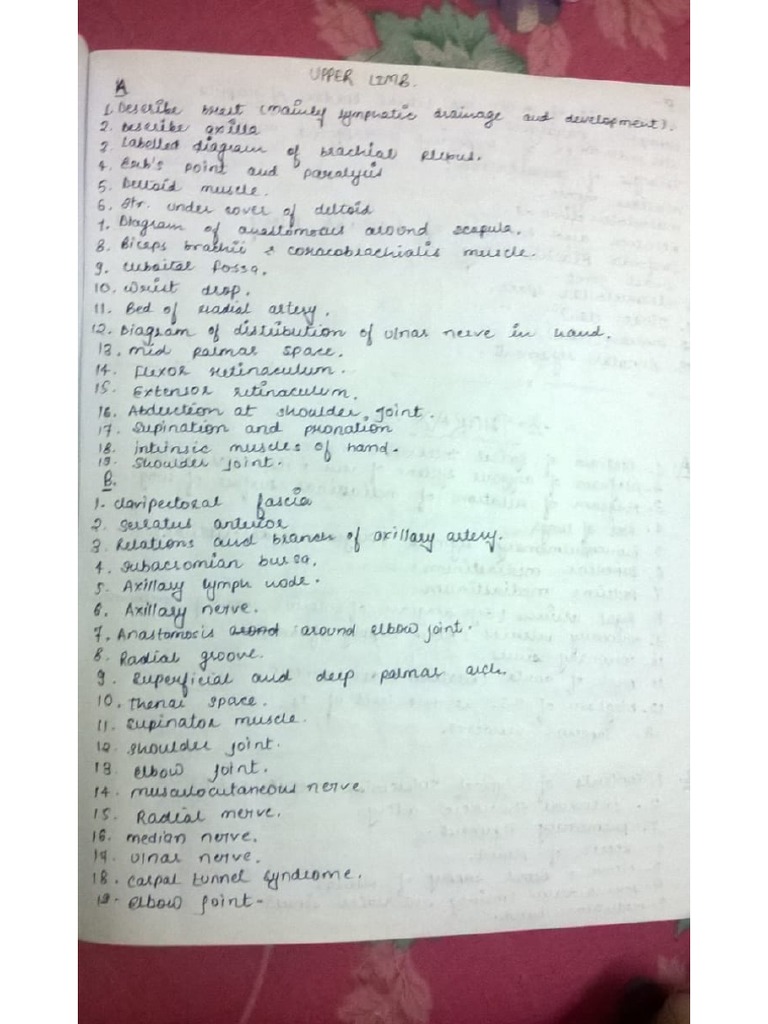 UPPER LIMB.
A
1. Describe brest (mainly lymphatic drainage and development).
2. Describe axilla
3. Labelled diagram of brachial plexus.
4. Erb's point and paralysis
5. Deltoid muscle.
6. Str. under cover of deltoid
7. Diagram of anastomoses around scapula.
8. Biceps brachii & coracobrachialis muscle.
9. cubaital fossa.
10. Wrist drop.
11. Bed of radial artery.
12. Diagram of distribution of ulnar nerve in hand.
13. mid palmar space.
14. Flexor retinaculum.
15. Extensor retinaculum.
16. Abduction at shoulder joint.
17. Supination and pronation
18. intrinsic muscles of hand.
19. Shoulder joint.
B.
1. clavipectoral fascia
2. serratus anterior
3. Relations and branch of axillary artery.
4. subacromian bursa.
5. Axillary lymph node.
6. Axillary nerve.
7. Anastomosis around elbow joint.
8. Radial groove.
9. Superficial and deep palmar arch.
10. Thenar space.
11. Supinator muscle.
12. shoulder joint.
13. elbow joint.
14. musculocutaneous nerve
15. Radial nerve.
16. median nerve.
17. ulnar nerve.
18. carpal tunnel syndrome.
19. elbow joint.